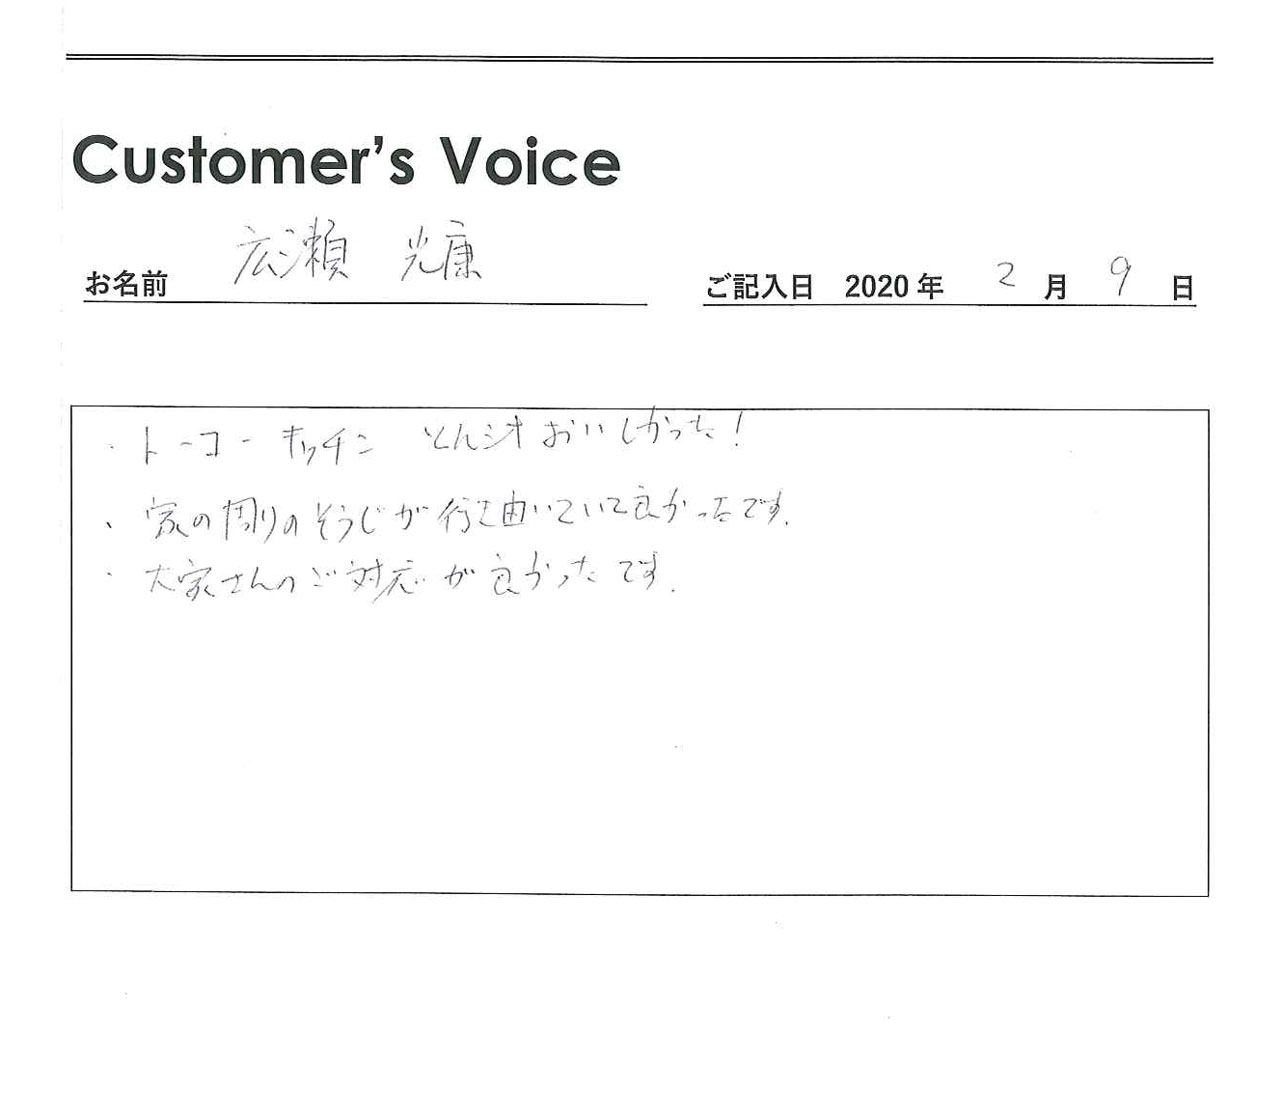 Customer's Voice
お名前 広瀬 光康
ご記入日 2020年 2月 9日
・トーコーキッチン とん汁おいしかった!
・家の周りのそうじが行き届いていて良かったです.
・大家さんのご対応が良かったです.